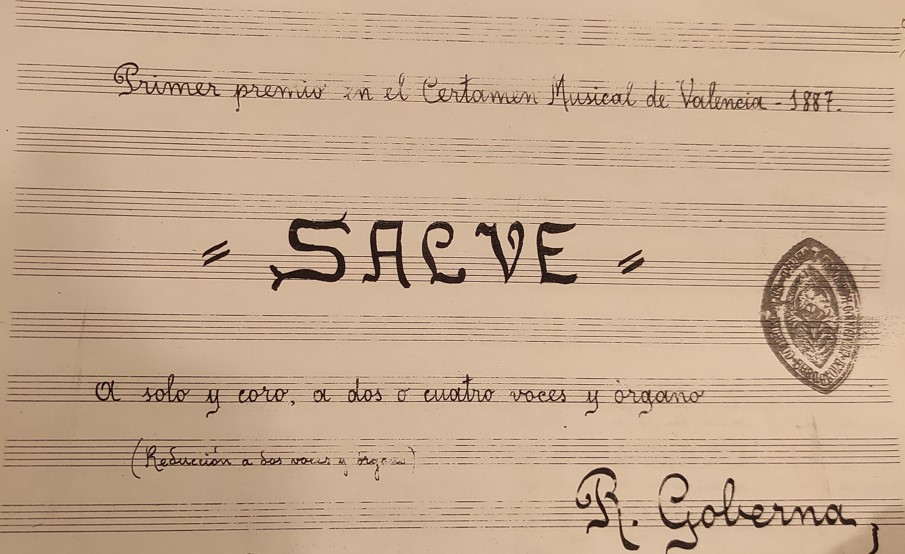 Primer premio en el Certamen Musical de Valencia - 1887.
= SALVE =
A solo y coro, a dos o cuatro voces y órgano
(Reducción a dos voces y órgano)
R. Goberna